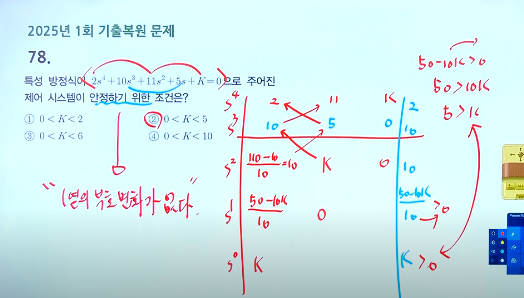 2025년 1회 기출복원 문제
78.
특성 방정식이 2s⁴+10s³+11s²+5s+K=0으로 주어진
제어 시스템이 안정하기 위한 조건은?
① 0<K<2 ② 0<K<5
③ 0<K<6 ④ 0<K<10
"1열의 부호 변화가 없다."
s⁴ 2 11 K 2
s³ 10 5 0 10
s² 110-10/10=10 K 0 10
s¹ 50-10K/10 0 50-10K/10 >0
s⁰ K K>0
50-10K>0
50>10K
5>K